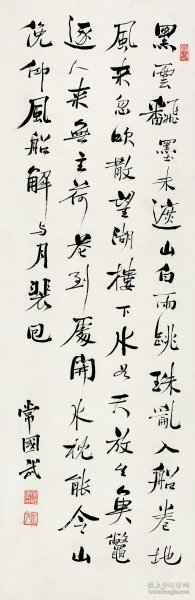 黑雲翻墨未遮山白雨跳珠亂入船卷地
風来忽吹散望湖樓下水如天放生魚鼈
逐人来無主荷花到處開水枕能令山
俛仰風船解与月裴回
常國武